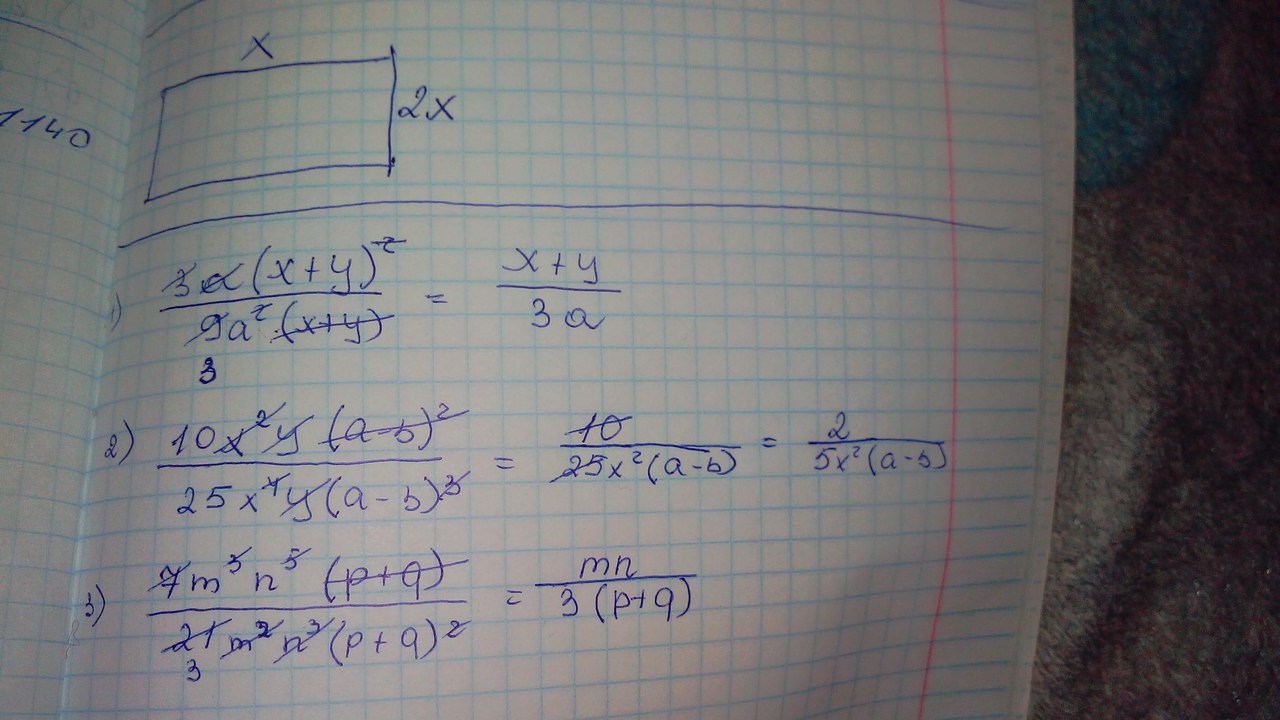 1140
x
2x
1) 3a(x+y)² / 9a²(x+y) = x+y / 3a
3
2) 10x²y(a-b)² / 25x⁴y(a-b)³ = 10 / 25x²(a-b) = 2 / 5x²(a-b)
3) 7m³n⁵(p+q) / 21m²n³(p+q)² = mn / 3(p+q)
3